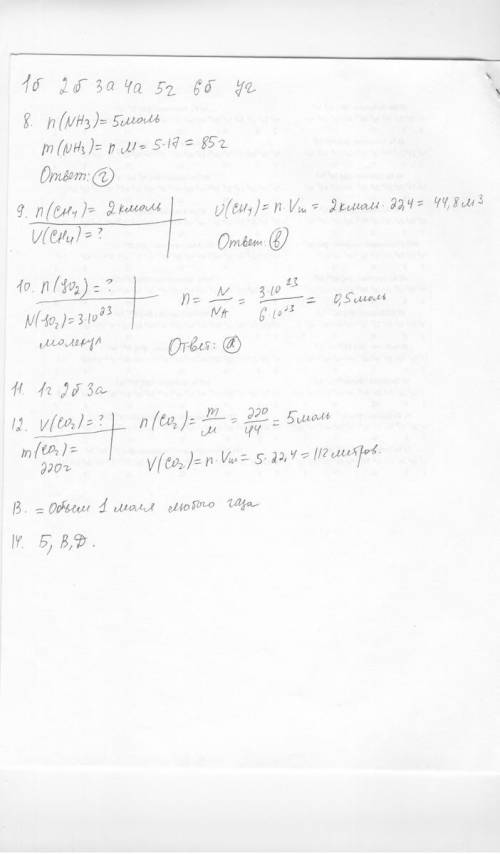 1б 2б 3а 4а 5г 6б 7г
8. n(NH3)= 5моль
m(NH3)= n·M= 5·17= 85г
Ответ: г
9. n(CH4)= 2кмоль
V(CH4)= ?
υ(CH4)= n·Vm= 2кмол·22,4= 44,8м3
Ответ: в
10. n(SO2)= ?
N(SO2)=3·10^23
молекул
n= N/NA = 3·10^23/6·10^23 = 0,5моль
Ответ: а
11. 1г 2б 3а
12. V(CO2)=?
m(CO2)=
220г
n(CO2)= m/M = 220/44 = 5моль
V(CO2)= n·Vm= 5·22,4= 112литров.
13. = Объем 1 моля любого газа
14. Б, В, Д.